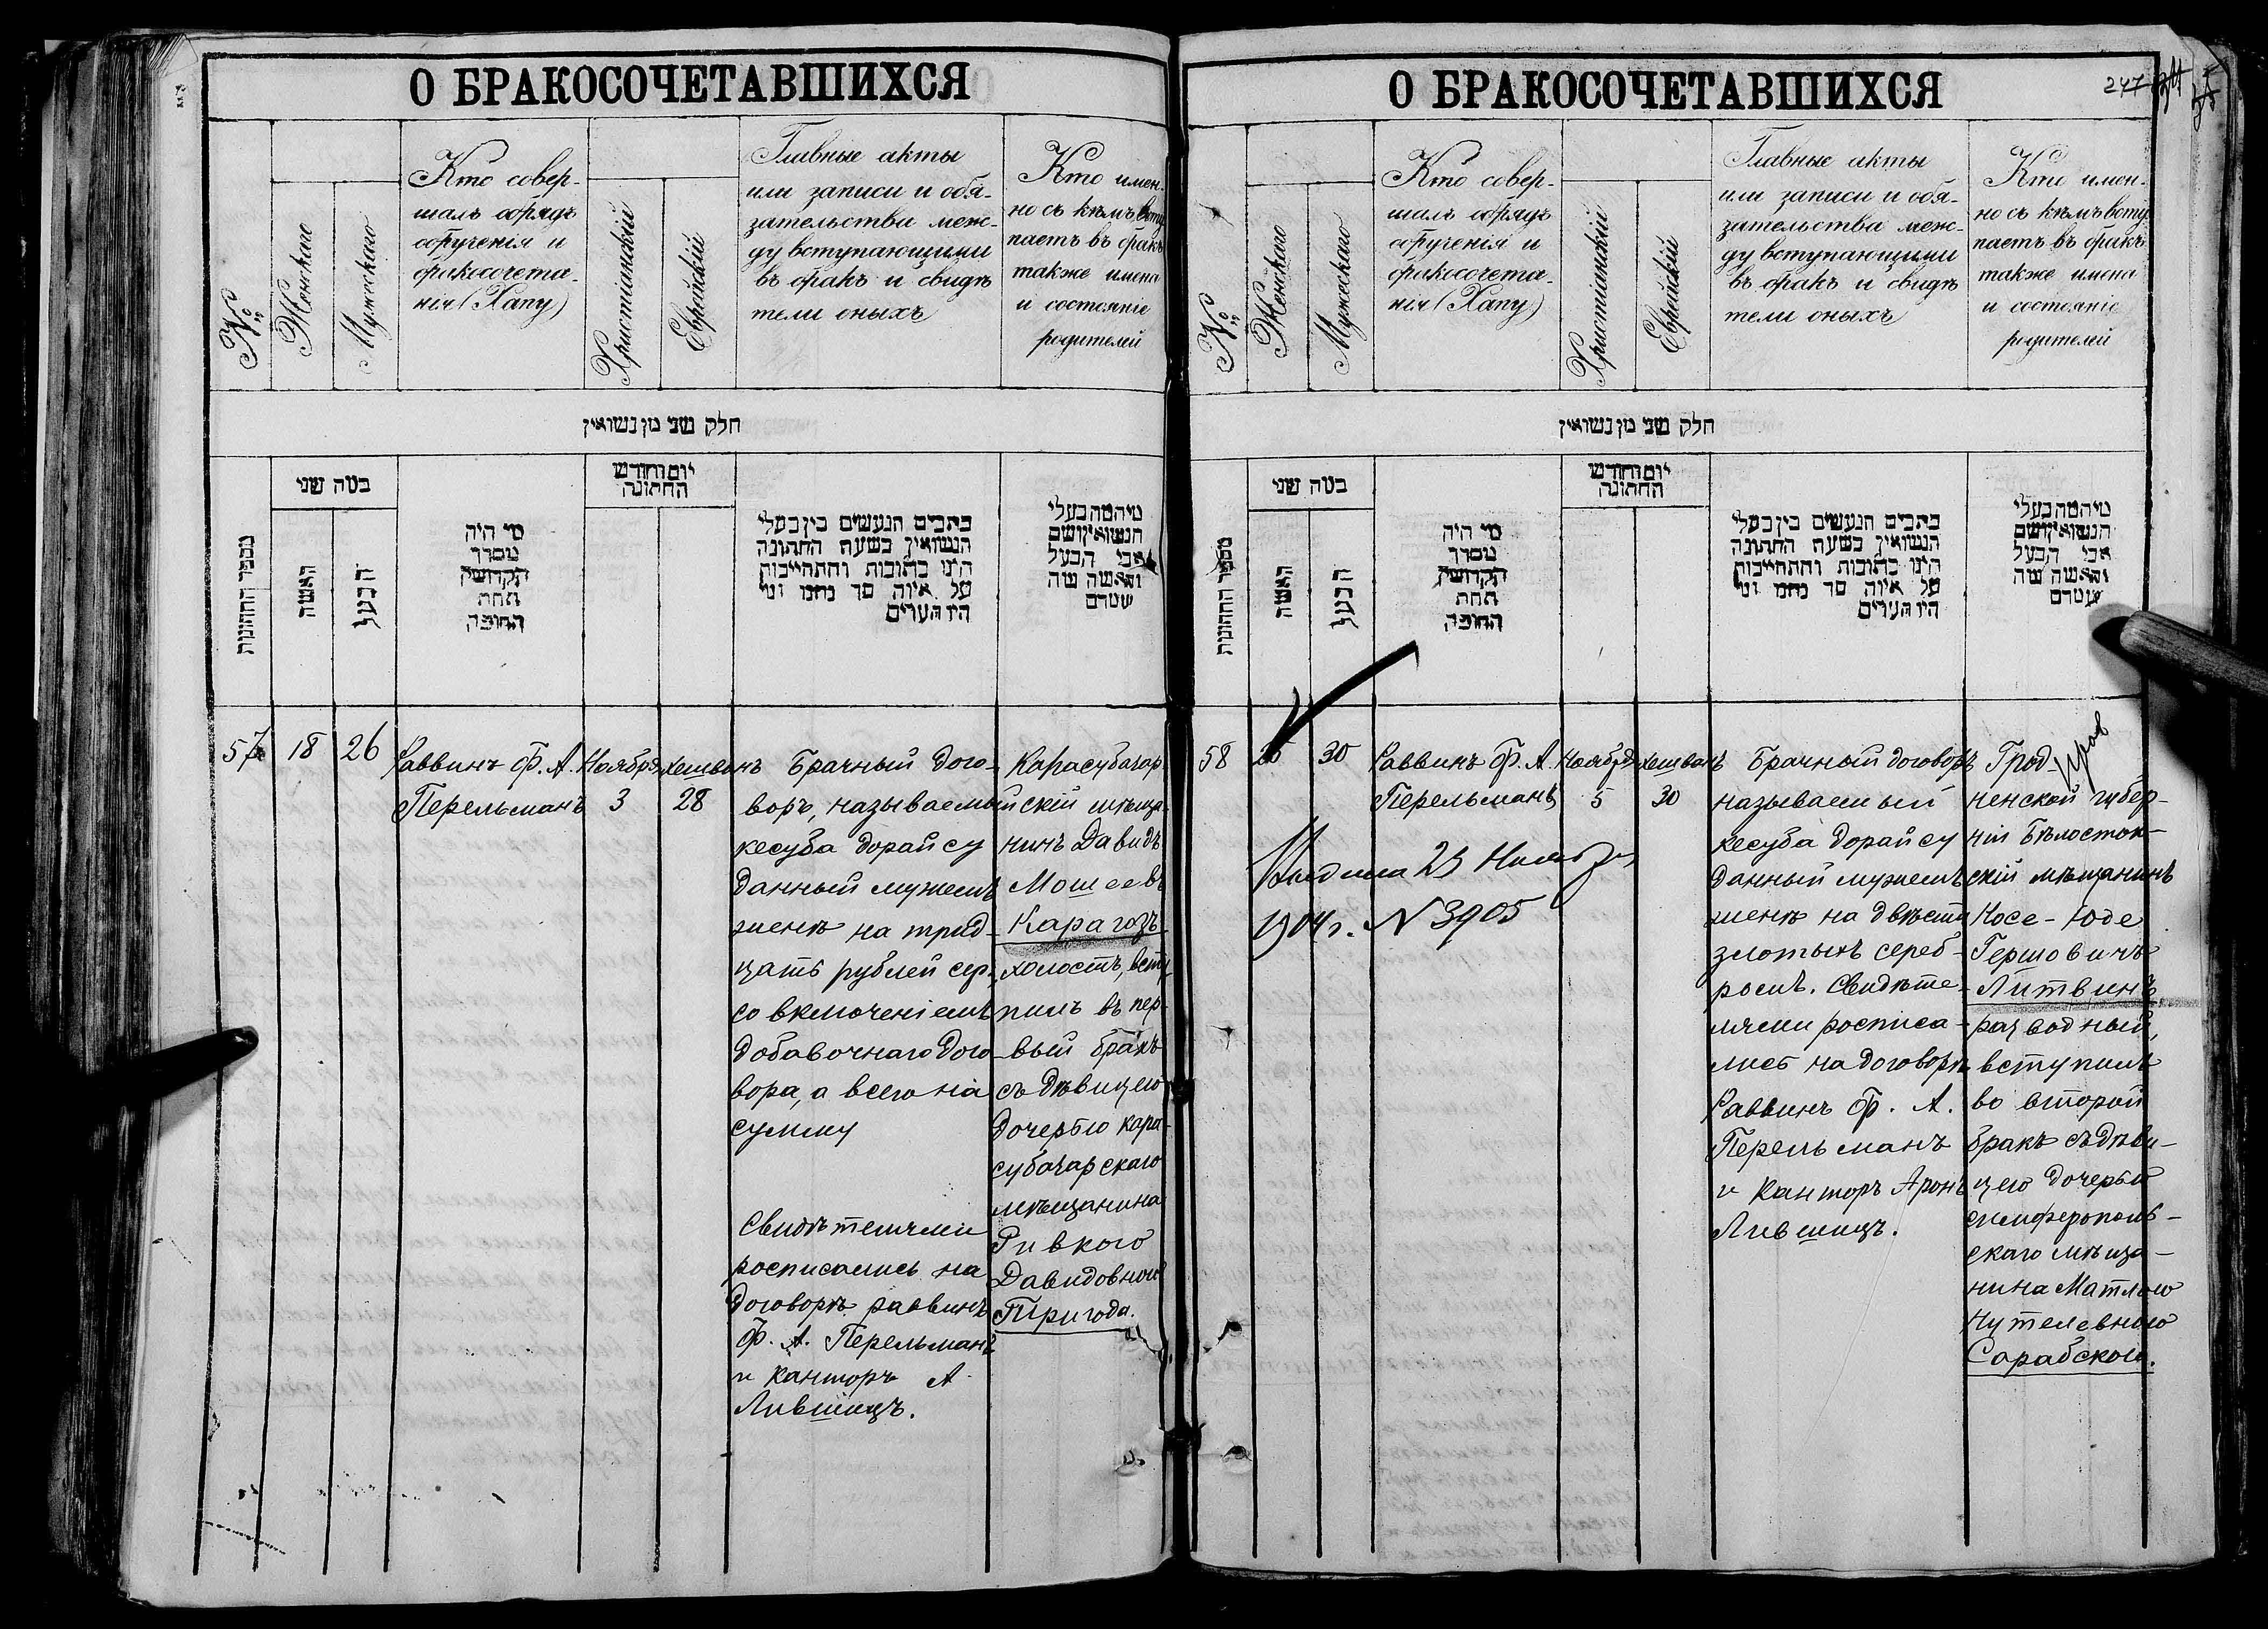 О БРАКОСОЧЕТАВШИХСЯ
№
Женскаго
Мужескаго
Кто совер-
шалъ обрядъ
обрученія и
бракосочета-
нія (Хапу)
Христіанскій
Еврейскій
Главные акты
или записи и обя-
зательства меж-
ду вступающими
въ бракъ и свидѣ
тели оныхъ
Кто имен-
но съ кѣмъ всту
паетъ въ бракъ
также имена
и состояніе
родителей
חלק שני מן נשואין
מספר החתונות
כמה שני
האשה
הבעל
מי היה
מסדר
הקדושין
תחת
החופה
יום וחודש
החתונה
כתבים הנעשים בין בעלי
הנשואין בשעת החתונה
היינו כתובות והתחייבות
על איזה סך
היו העדים
הנשואין ושם
אבי הבעל
והאשה
57
18
26
Раввинъ Ф. А.
Перельманъ
Ноября
3
Хешванъ
28
Брачный дого-
воръ, называемый
кесуба дорайсу
данный мужемъ
женѣ на трид-
цать рублей сер.
со включеніемъ
добавочнаго дого-
вора, а всего на
сумму
Свидѣтелями
росписались на
договорѣ раввинъ
Ф. А. Перельманъ
и канторъ А.
Лившицъ.
Карасубазар
скій мѣща-
нинъ Давидъ
Мошеевъ
Карагозъ
холостъ, всту
пилъ въ пер-
вый бракъ
съ дѣвицею
дочерью кара-
субазарскаго
мѣщанина
Ривкою
Давидовною
Пригода.
О БРАКОСОЧЕТАВШИХСЯ
247
№
Женскаго
Мужескаго
Кто совер-
шалъ обрядъ
обрученія и
бракосочета-
нія (Хапу)
Христіанскій
Еврейскій
Главные акты
или записи и обя-
зательства меж-
ду вступающими
въ бракъ и свидѣ
тели оныхъ
Кто имен-
но съ кѣмъ всту
паетъ въ бракъ
также имена
и состояніе
родителей
חלק שני מן נשואין
מספר החתונות
כמה שני
האשה
הבעל
מי היה
מסדר
הקדושין
תחת
החופה
יום וחודש
החתונה
כתבים הנעשים בין בעלי
הנשואין בשעת החתונה
היינו כתובות והתחייבות
על איזה סך
היו העדים
הנשואין ושם
אבי הבעל
והאשה
58
30
Раввинъ Ф. А.
Перельманъ
Ноября
5
Хешванъ
30
Выдана 23 Ноября
1904 г. N 3905
Брачный договоръ
называемый
кесуба дорайсу
данный мужемъ
женѣ на двѣсти
злотыхъ сереб-
ромъ. Свидѣте-
лями росписа-
лись на договорѣ
Раввинъ Ф. А.
Перельманъ
и Канторъ Аронъ
Лившицъ.
Грод-
ненской губер-
ніи Бѣлосток-
скій мѣщанинъ
Іосе-Юде
Гершовичъ
Литвинъ
разводный,
вступилъ
во второй
бракъ съ дѣви-
цею дочерью
симферополь-
скаго мѣща-
нина Матлею
Нутелевною
Сарабскою.